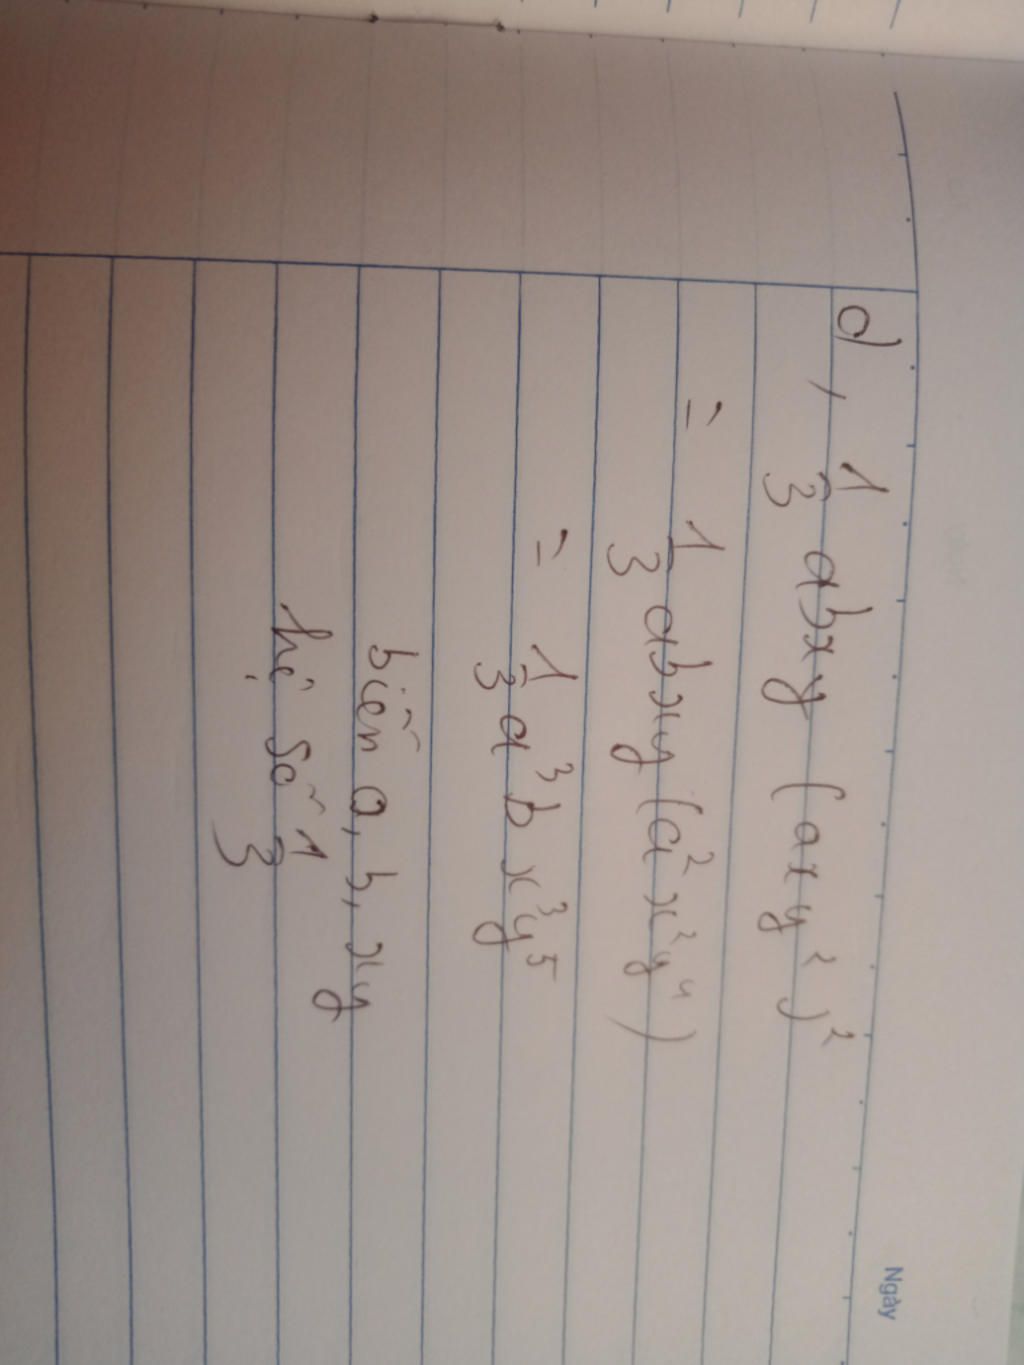 d, 1/3 abxy (axy²)²
= 1/3 abxy (a²x²y⁴)
= 1/3 a³bx³y⁵
biến a, b, xy
hệ số 1/3
Ngày